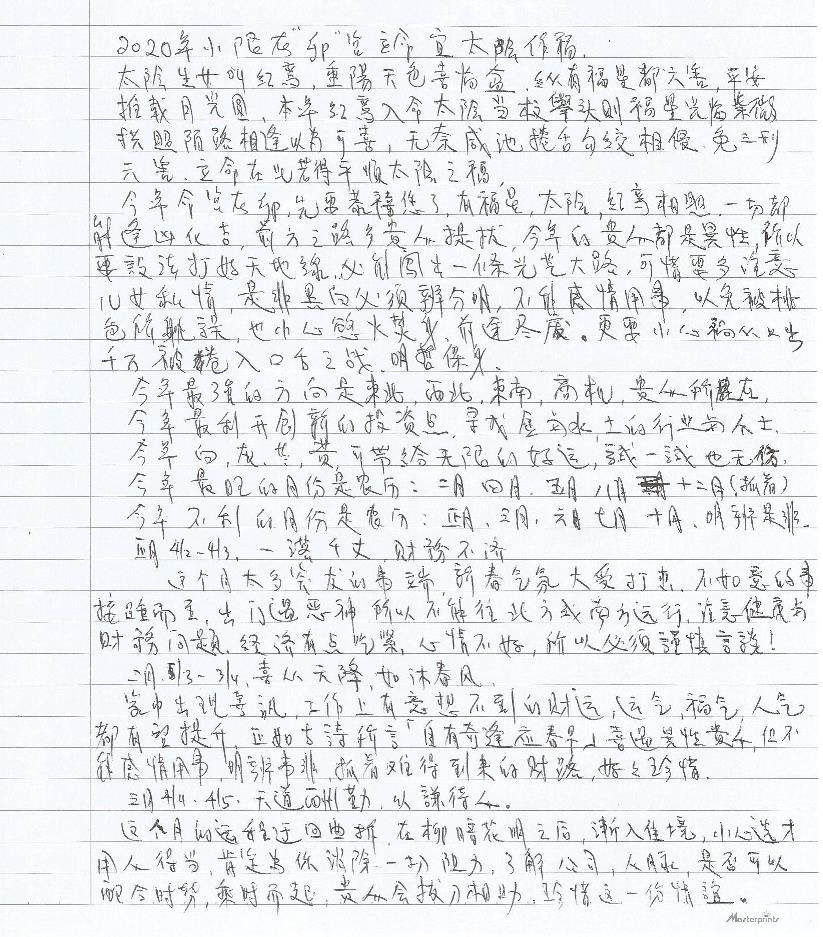 2020年小限在"卯"宫立命宜太陰作福
太陰生女叫紅鸞,重陽天色喜倘盆,纵有福星都六害,平安
推載月光圆,本年紅鸞入命太陰当权擧头则福星光临紫微
拱照陌路相逢以为可喜,无奈咸池捲舌勾绞相侵,免三刑
六害,立命在此若得平順太陰之福
今年命宫在卯,先要恭禧您了,有福星,太陰,紅鸞相照,一切都
能逢凶化吉,前方之路多貴人提拔,今年的貴人都是異性,所以
要設法打好天地線,必能闯出一條光芒大路,可惜要多注意
儿女私情,是非黑白必须辨分明,不能感情用事,以免被桃
色所躭誤,也小心慾火焚身,前途尽废。更要小心祸从口出
千万被捲入口舌之战,明哲保身.
今年最强的方向是東北,西北,東南,商机,貴人所在.
今年最利开创新的投资点,尋求金与水,土的行业与人士.
今年白,灰,黄,可带给无限的好运,試一試也无傷.
今年最旺的月份是农历:二月 四月.五月 八月 十二月(抓着)
今年不利的月份是农历:正月,三月,六月七月 十月,明辨是非.
正月 4/2~4/3,一落千丈,财務不济
这个月太多突发的事端,新春气氛大受打击,不如意的事
接踵而至,出门遇恶神所以不能往北方或南方远行,注意健康与
财務问题,经济有点吃緊,心情不好,所以必须謹慎言談!
二月 5/3~3/4,喜从天降,如沐春风.
家中出现喜訊,工作上有意想不到的财运,运气,福气,人气
都有望提升,正如古詩所言「自有奇逢应春早」喜遇異性貴人,但不
能感情用事,明辨事非,抓着难得到来的财路,好之珍惜.
三月 4/4-4/5.天道酬勤,以謙待人。
这个月的运程迂回曲折,在柳暗花明之后,漸入佳境,小心选才
用人得当,肯定为你消除一切阻力,了解公司,人脉,是否可以
配合时势,乘时而起,貴人会拔刀相助,珍惜这一份情誼。
Masterprints